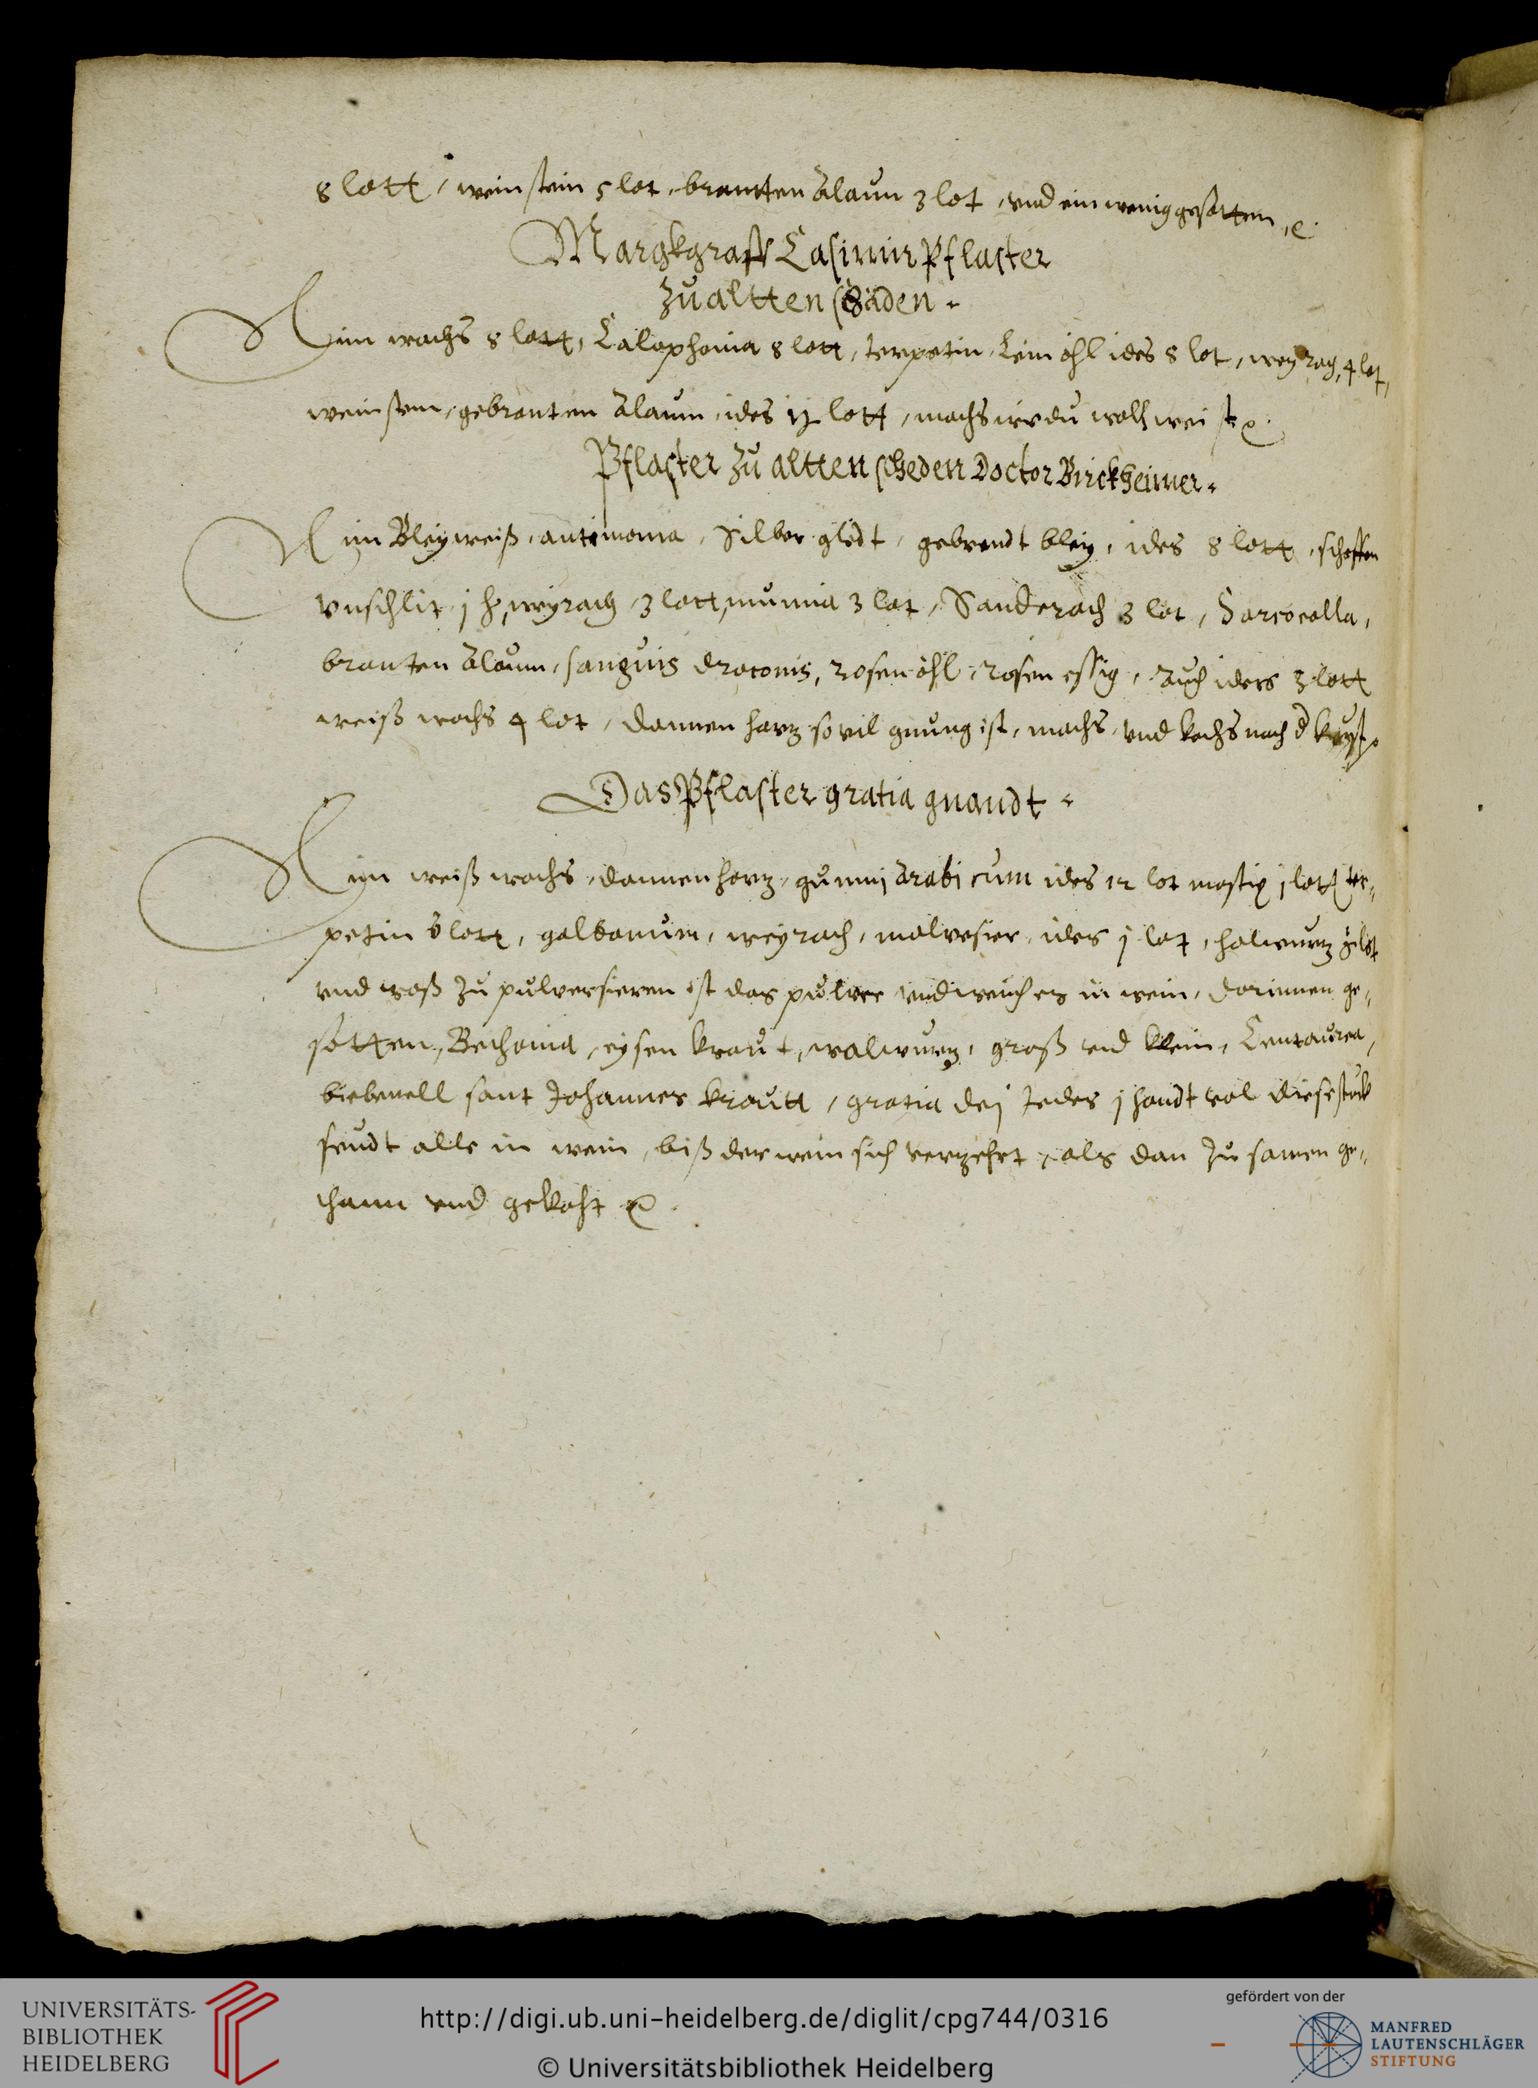 8 lott, weinstein 5 lot, brantten Alaun 3 lot, vnd ein wenig gesotten, ꝛc.
Margkgraff Casimir Pflaster
Zu altten schäden.
Nim wachs 8 lott, Calophonia 8 lott, terpetin, Lein öhl ides 8 lot, weyrag, 4 lot,
weinstein, gebranten Alaum, ides lott, machs wie du wolh weist ꝛc.
Pflaster zu altten scheden Doctor Birckheimer.
Nim Bleyweiß, antimonia, Silber gledt, gebrendt bley, ides 8 lott, schoffen
vnschlit j ℔, weyrach 3 lott, mumia 3 lot, Sanderach 3 lot, Sarcocolla,
branten Alaum, sanguis draconis, rosen öhl, rosen essig, Auch iders 3 lott
weiß wachs 4 lot, dannen harz so vil gnung ist, machs vnd kochs nach d kunst
Das Pflaster gratia gnandt.
Nim weiß wachs, dannen harz, gummj Arabicum ides 12 lot mastix j lott ter-
petin 8 lott, galbanum, weyrach, malvesier, ides j lot, holwurtz
vnd waß zu pulversieren ist das pulver vnd weich es in wein, dorinnen ge-
sotten, Bethonia, eysen kraut, walwurtz, groß vnd klein, Centaurea,
biebenell sant Johannes krautt, gratia dej Jedes j handt vol diese stuck
seudt alle in wein, biß der wein sich verzehrt, als dan zu samen ge-
thann vnd gekocht ꝛc.
UNIVERSITÄTS-
BIBLIOTHEK
HEIDELBERG
http://digi.ub.uni-heidelberg.de/diglit/cpg744/0316
© Universitätsbibliothek Heidelberg
gefördert von der
MANFRED
LAUTENSCHLÄGER
STIFTUNG